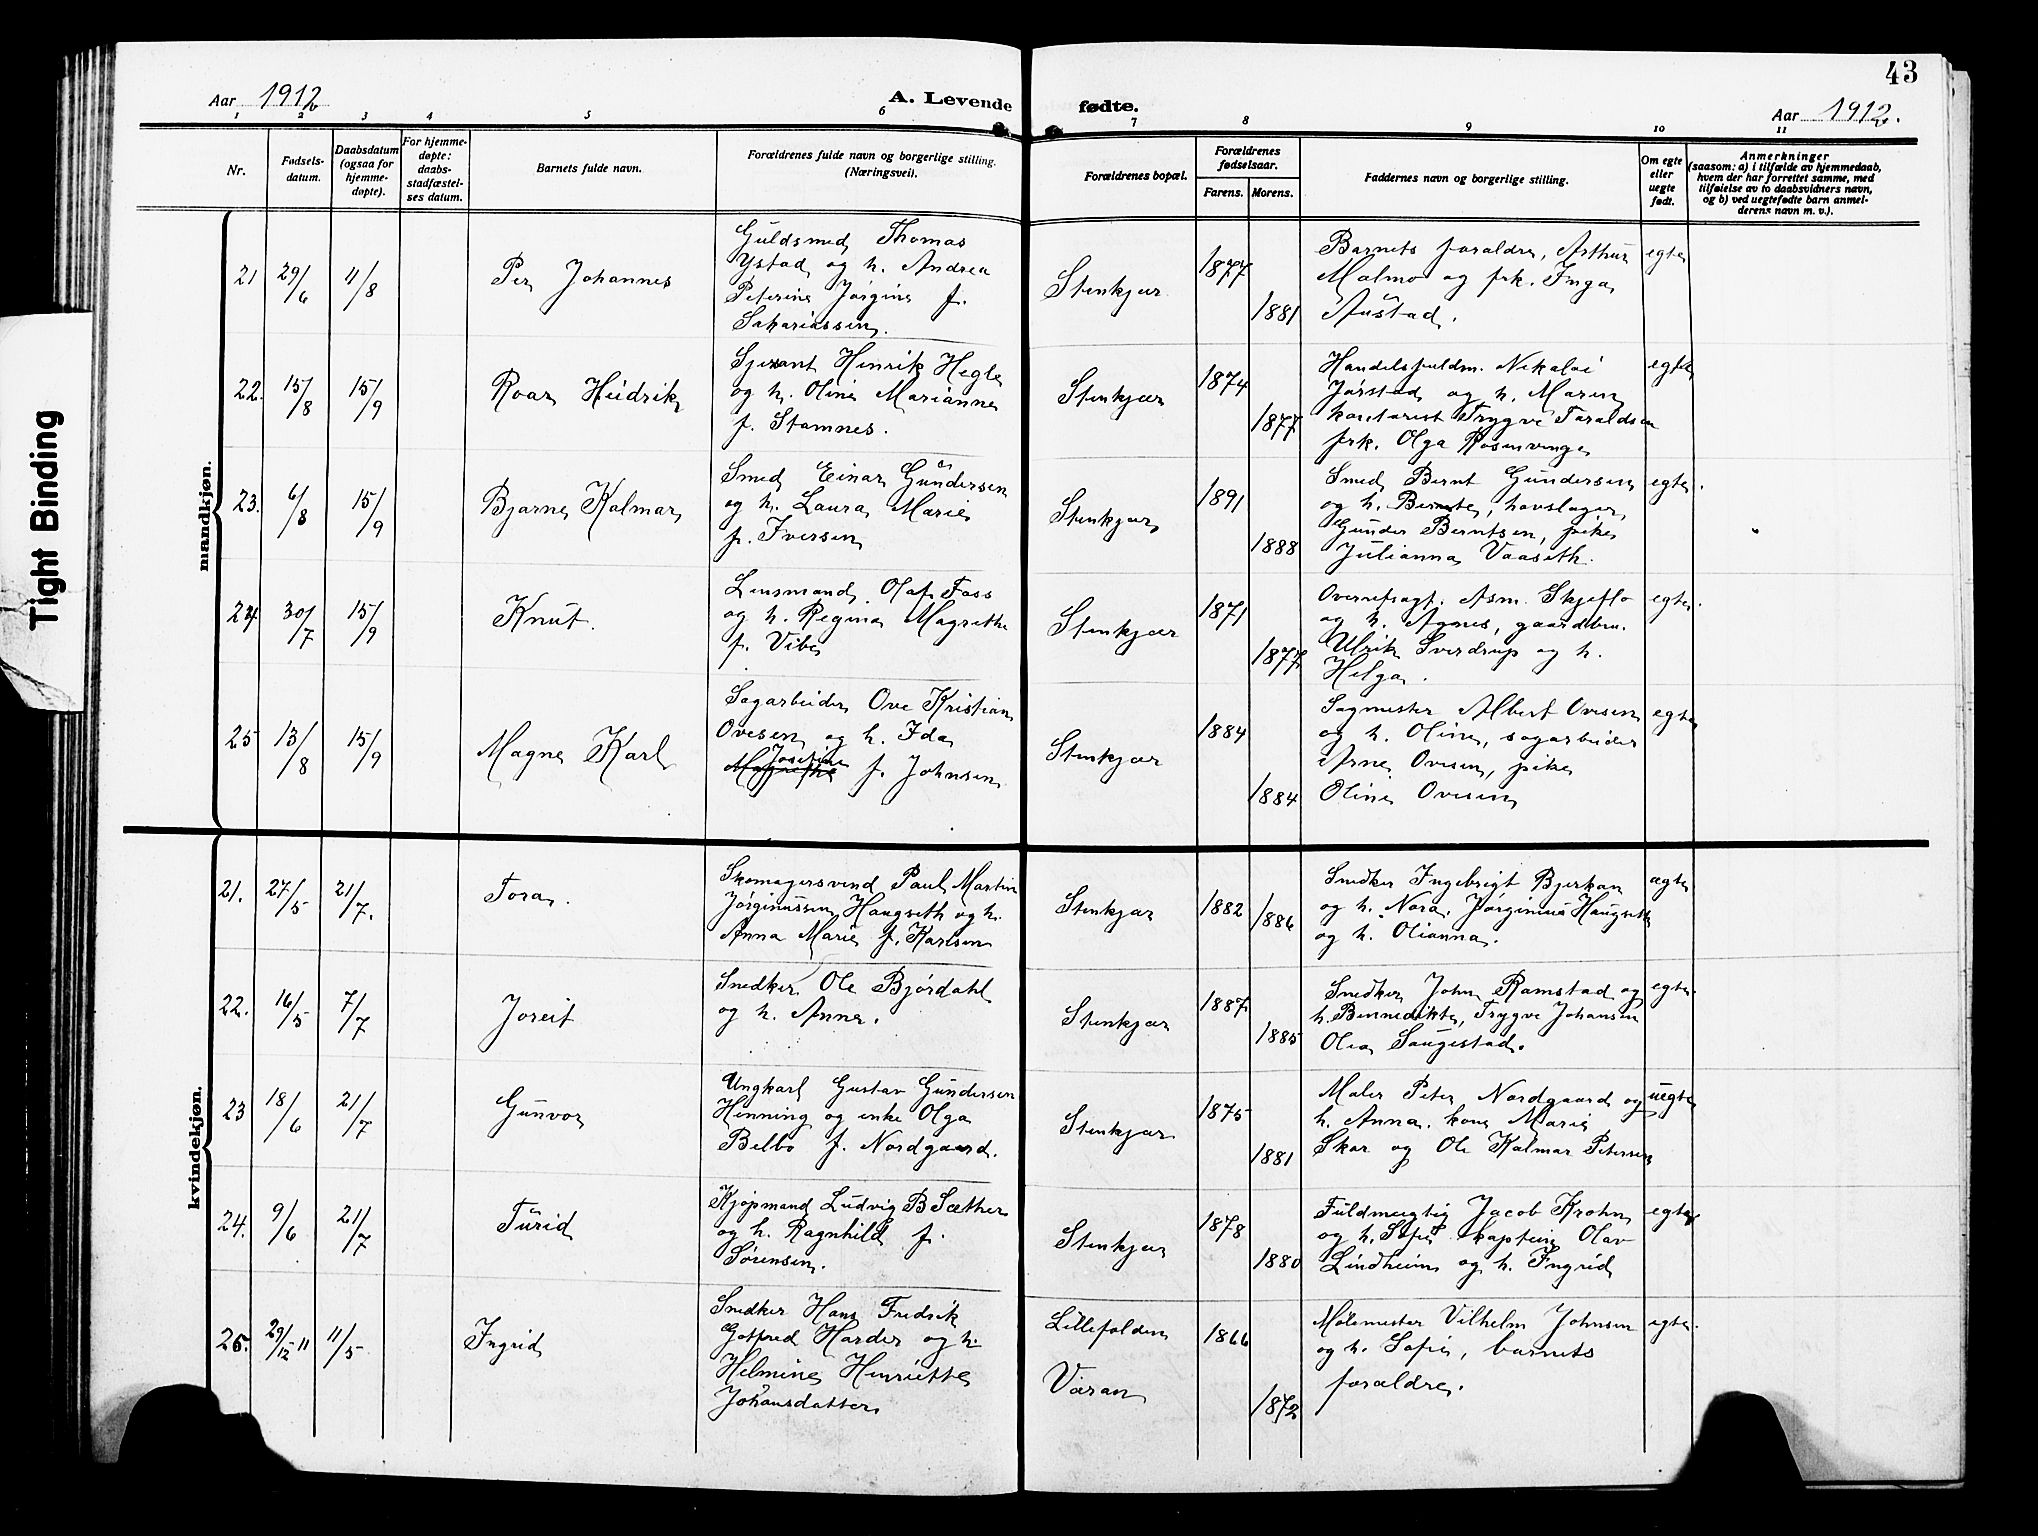 43
Aar 1912
A. Levende fødte.
Aar 1912.
1 2 3 4 5 6 7 8 9 10 11
Nr.
Fødsels-
datum.
Daabsdatum
(ogsaa for
hjemme-
døpte).
For hjemme-
døpte:
daabs-
stadfæstel-
ses datum.
Barnets fulde navn.
Forældrenes fulde navn og borgerlige stilling.
(Næringsvei).
Forældrenes bopæl.
Forældrenes
fødselsaar.
Farens. Morens.
Faddernes navn og borgerlige stilling.
Om egte
eller
uegte
født.
Anmerkninger
(saasom: a) i tilfælde av hjemmedaab,
hvem der har forrettet samme, med
tilføielse av to daabsvidners navn,
og b) ved uegtefødte barn anmel-
derens navn m. v.).
Tight Binding
mandkjøn.
21 29/6 11/8 Per Johannes
Guldsmed Thomas
Ystad og h. Andrea
Peterine Jørgine f.
Sakariassen.
Stenkjær 1877 1881
Barnets forældre, Arthur
Malmo og frk. Inga
Austad.
egte
22. 15/8 15/9 Roar Hendrik
Sjersant Henrik Hegle
og h. Oline Marianne
f. Stamnes.
Stenkjær 1874 1877
Handelsfuldm. Nikolai
Jørstad og h. Maren
kontorist Trygve Taraldsen
frk. Olga Rosenvinge
egte
23. 6/8 15/9 Bjarne Kalmar
Smed Einar Gundersen
og h. Laura Marie
f. Iversen
Stenkjær 1891 1888
Smed Bernt Gundersen
og h. Bernte, hovslager
Gunder Berntsen, pike
Julianna Vaaseth.
egte.
24 30/7 15/9 Knut.
Lensmand Olaf Foss
og h. Regina Magrethe
f. Vibe
Stenkjær 1871 1877
Overrefsagf. Asm. Skjeflo
og h. Agnes, gaardbru.
Ulrik Sverdrup og h.
Helga.
egte.
25 13/8 15/9 Magne Karl
Sagarbeider Ove Kristian
Ovesen og h. Ida
Josefine
Magrethe f. Johnsen
Stenkjær 1884 1884
Sagmester Albert Ovesen
og h. Oline, sagarbeider
Arne Ovesen, pike
Oline Ovesen
egte
kvindekjøn.
21. 27/5 21/7. Tora.
Skomagersvend Paul Martin
Jørginussen Haugseth og h.
Anna Marie f. Karlsen
Stenkjær 1882 1886
Snedker Ingebrigt Bjerkan
og h. Nora. Jørginus Haugseth
og h. Olianna.
egte
22. 16/5 7/7 Joreit
Snedker Ole Bjørdahl
og h. Anna.
Stenkjær 1887 1885
Snedker John Ramstad og
h. Bennedikte, Trygve Johansen
Olea Saugestad.
egte.
23 18/6 21/7 Gunvor
Ungkarl Gustav Gundersen
Henning og enke Olga
Belbo f. Nordgaard.
Stenkjær 1875 1881
Maler Peter Nordgaard og
h. Anna. kone Marie
Skar og Ole Kalmar Petersen
uegte
24. 9/6 21/7 Turid
Kjøpmand Ludvig B Sæther
og h. Ragnhild f.
Sørensen.
Stenkjær 1878 1880
Fuldmegtig Jacob Krohn
og h. Sofie kaptein Olav
Lindheim og h. Ingrid
egte
25. 29/12 11 11/5 Ingrid
Snedker Hans Fredrik
Gotfred Harder og h.
Helmine Henriette
Johansdatter
Lillefolden
Væran
1866 1872
Mølemester Vilhelm Johnsen
og h. Sofie, barnets
forældre.
egte.